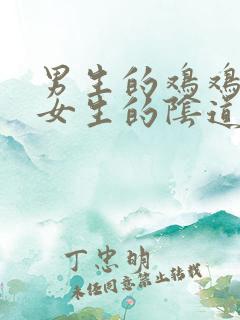 男生的鸡鸡
女生的陰道
丁忠明
未经同意禁止转载